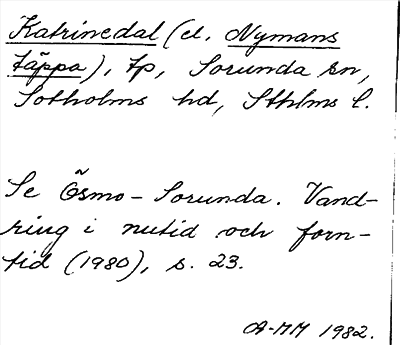 Katrinedal (el. Nymans
täppa), tp, Sorunda sn,
Sotholms hd, Sthlms l.
Se Ösmo - Sorunda. Vand-
ring i nutid och forn-
tid (1980), s. 23.
A-MM 1982.